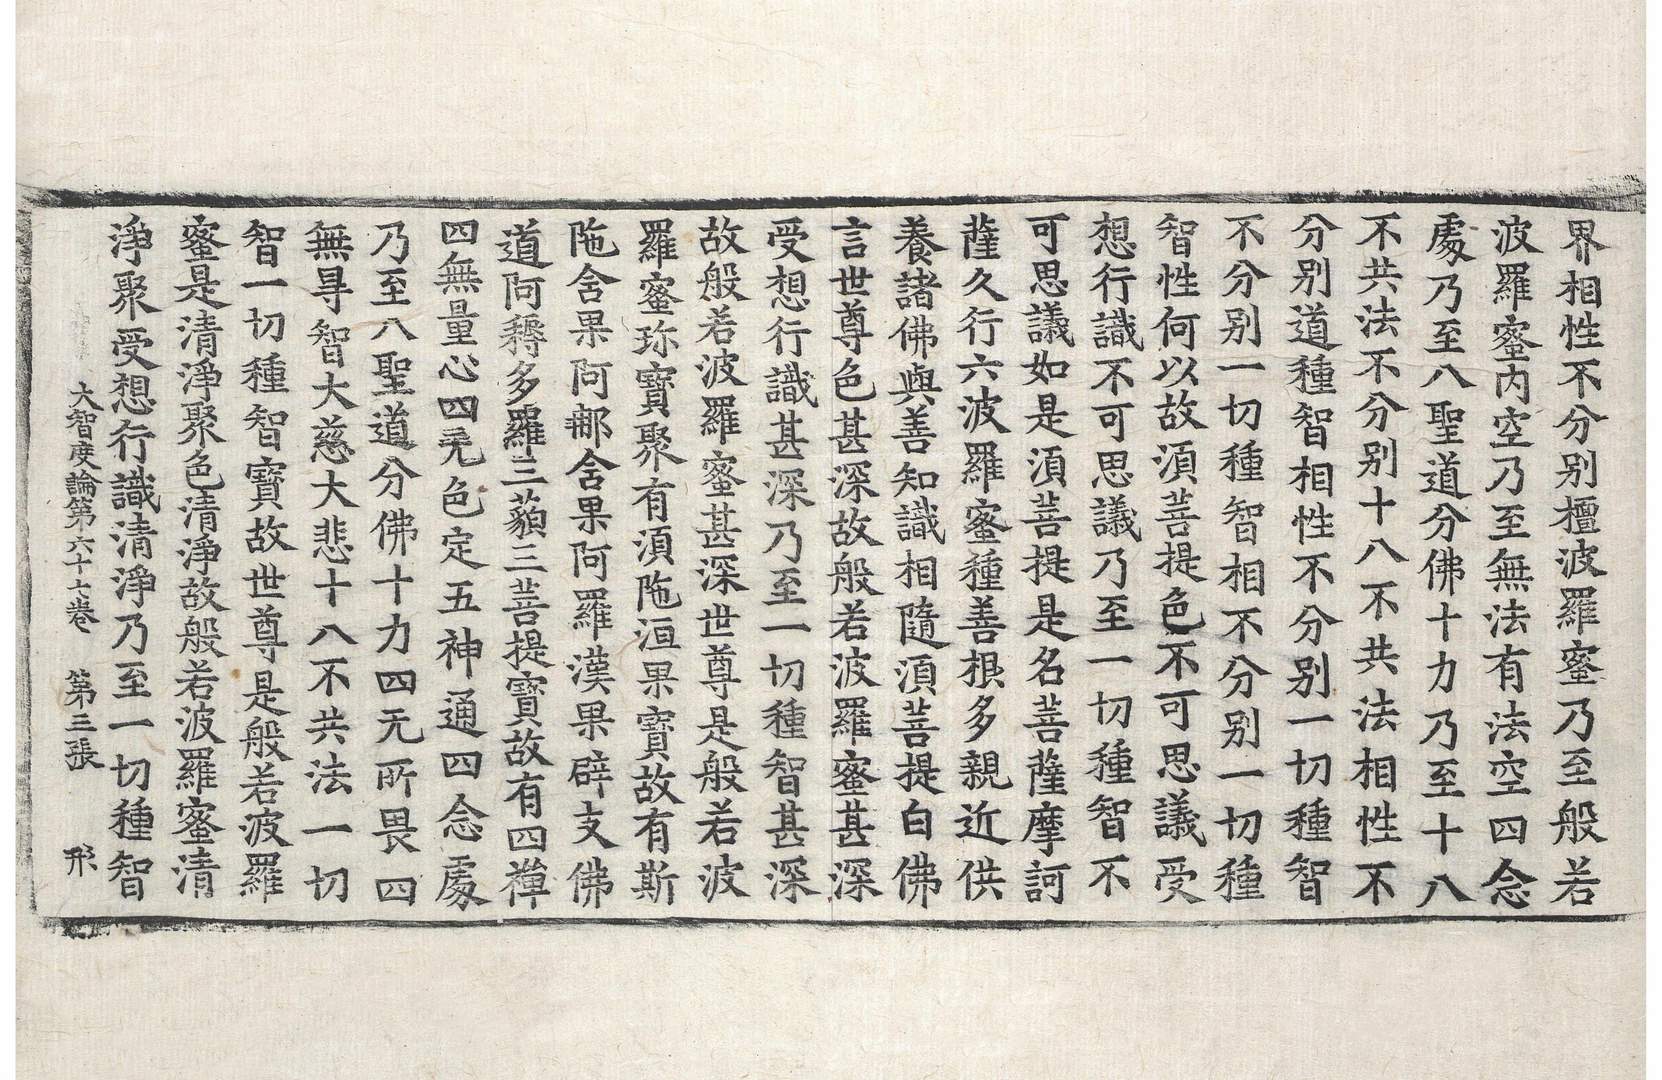 界相性不分别檀波羅蜜乃至般若
波羅蜜内空乃至無法有法空四念
處乃至八聖道分佛十力乃至十八
不共法不分别十八不共法相性不
分别道種智相性不分别一切種智
不分别一切種智相不分别一切種
智性何以故湏菩提色不可思議受
想行識不可思議乃至一切種智不
可思議如是湏菩提是名菩薩摩訶
薩久行六波羅蜜種善根多親近供
養諸佛與善知識相隨湏菩提白佛
言世尊色甚深故般若波羅蜜甚深
受想行識甚深乃至一切種智甚深
故般若波羅蜜甚深世尊是般若波
羅蜜珎寶聚有湏陁洹果寶故有斯
陁含果阿𨚗含果阿羅漢果辟支佛
道阿耨多羅三藐三菩提寶故有四禪
四無量心四无色定五神通四念處
乃至八聖道分佛十力四无所畏四
無㝵智大慈大悲十八不共法一切
智一切種智寶故世尊是般若波羅
蜜是清淨聚色清淨故般若波羅蜜清
淨聚受想行識清淨乃至一切種智
大智度論第六十七卷 第三張 形